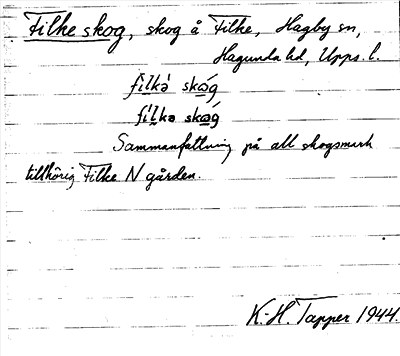 Filke skog, skog å Filke, Hagby sn,
Hagunda hd, Upps. l.
fìlkə̀ skǫ́g
fíl̥kə skǫ́g
Sammanfattning på all skogsmark
tillhörig Filke N gården.
K.-H. Tapper 1944.